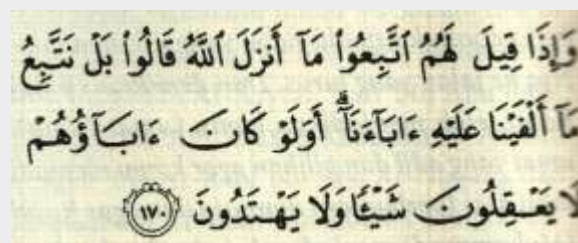 وَإِذَا قِيلَ لَهُمُ ٱتَّبِعُوا۟ مَآ أَنزَلَ ٱللَّهُ قَالُوا۟ بَلْ نَتَّبِعُ
مَآ أَلْفَيْنَا عَلَيْهِ ءَابَآءَنَآ ۗ أَوَلَوْ كَانَ ءَابَآؤُهُمْ
لَا يَعْقِلُونَ شَيْـًٔا وَلَا يَهْتَدُونَ ١٧٠